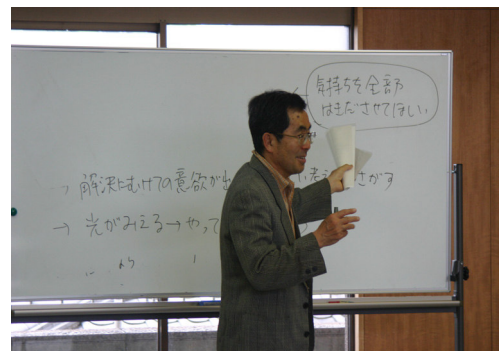 気持ちを全部
はきださせてほしい
→ 解決にむけての意欲が出 さがす
→ 光がみえる→やって